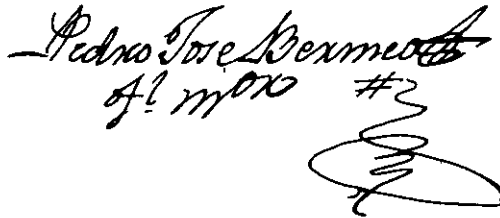 Pedro José Bermeo
mor